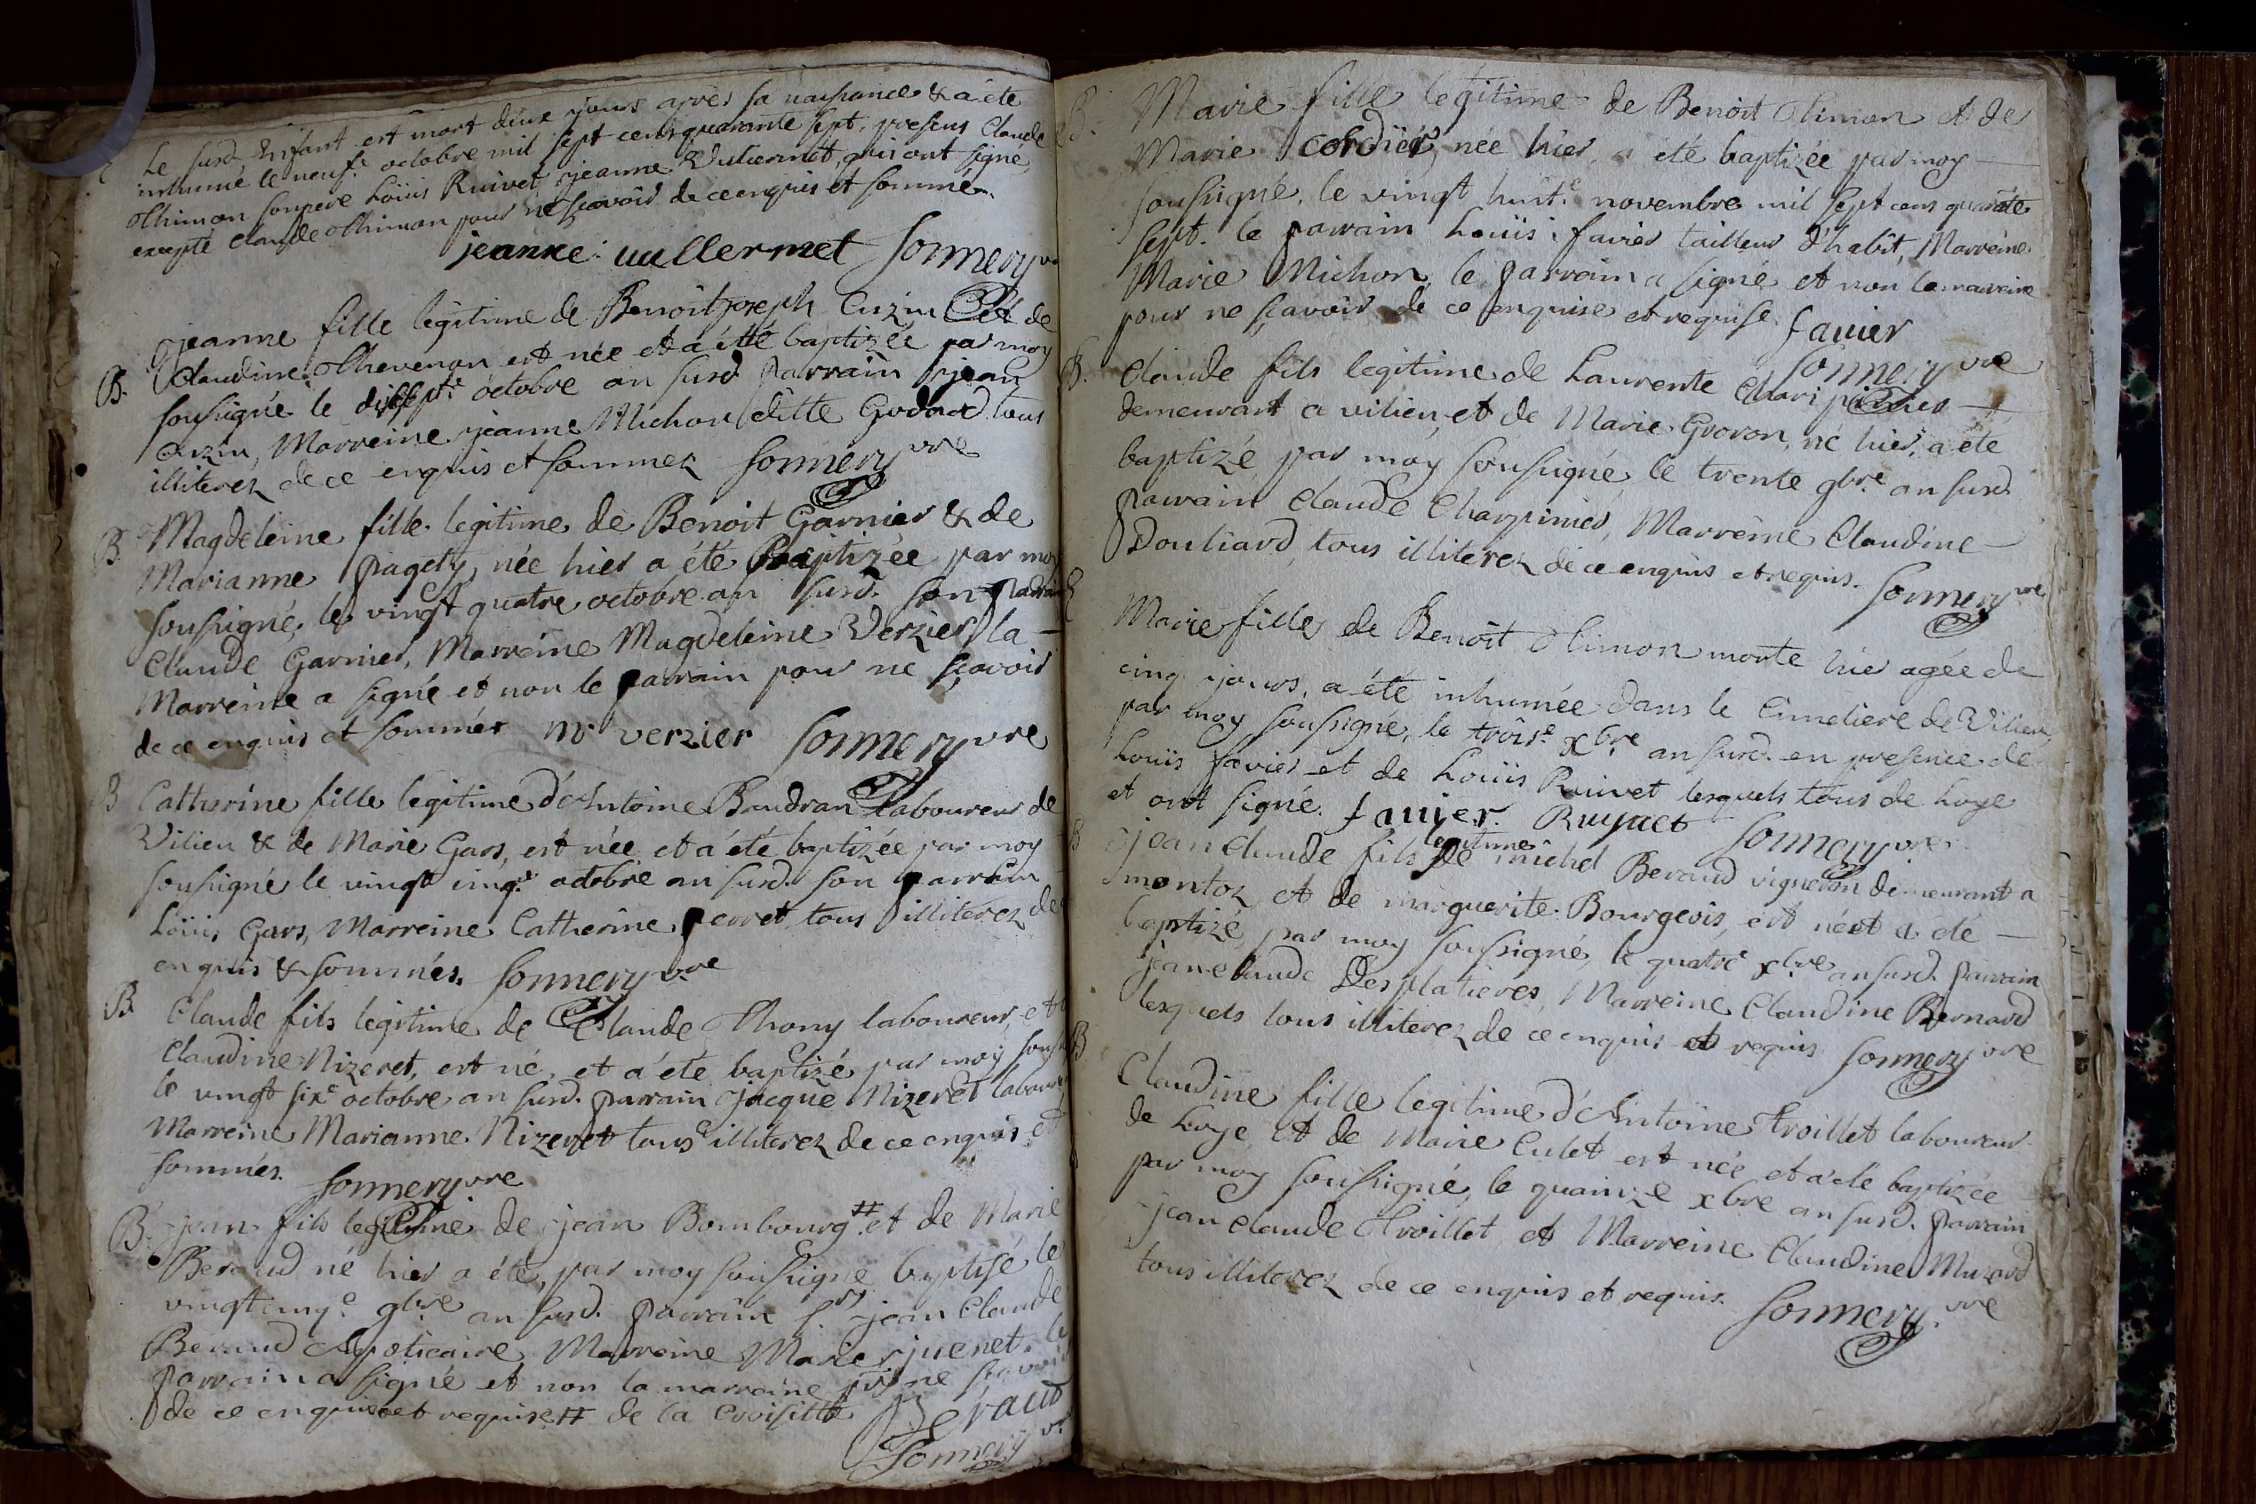 le susd. Enfant est mort deux jours apres sa naissance & a ete
inhumé le neuf.e octobre mil sept cens quarante sept. presens Claude
Othimon son pere Loüis Ruivet jeanne Vulliermet, qui ont signé
excepté claude othimon pour ne sçavoir de ce enquis et sommé.
jeanne vullermet Sonnery vre
B. jeanne fille legitime de Benoit joseph Cuzin et de
Claudine Thevenon est née et a été baptizée par moy
soussigné le dixsept.e octobre an susd. Parrain jean
Cuzin, Marreine jeanne Michon ditte Godard tous
illiterez de ce enquis et sommez Sonnery vre
B Magdeleine fille legitime de Benoit Garnier & de
Marianne pagety, née hier a été Baptizée par moy
soussigné, le vingt quatre octobre an susd. son parrain
Claude Garnier, Marreine Magdeleine Verzier, la
Marreine a signé et non le parrain pour ne sçavoir
de ce enquis et sommé m verzier Sonnery vre
B Catherine fille legitime d'Antoine Baudran laboureur de
Vilieu & de Marie Gars, est née et a été baptizée par moy
soussigné le vingt cinq.e octobre an susd. son parrain
Loüis Gars, Marreine Catherine perret tous illiterez de
enquis & sommés. Sonnery vre
B Claude fils legitime de Claude Thony laboureur, et
Claudine Nizeret, est né, et a été baptizé par moy
le vingt six.e octobre an susd. parrain jacque Nizeret
Marreine Marianne Nizeret tous illiterez de ce enquis et
sommés. Sonnery vre
B. jean fils legitime de jean Bombourg # et de Marie
Beraud né hier a été, par moy soussigné baptisé le
vingtcinq.e 9bre an susd. parrain s.r jean Claude
Beraud Apoticaire Marreine Marie juenet. le
parrain a signé et non la marreine pr ne sçavoir
de ce enquise et requise # de la Croisette Béraud
Sonnery vre
B. Marie fille legitime de Benoit Olimon et de
Marie Cordier, née hier a été baptizée par moy
soussigné, le vingt huit.e novembre mil sept cens quarante
sept. le parrain Loüis favier tailleur d'habit, Marreine
Marie Michon, le parrain a signé et non la marreine
pour ne sçavoir de ce enquise et requise. favier
Sonnery vre
B. Claude fils legitime de Laurente Charpinier
demeurant a vilieu et de Marie Groron, né hier, a été
baptizé par moy soussigné le trente 9bre an susd.
parrain Claude Charpinier, Marreine Claudine
Douliard, tous illiterez de ce enquis et requis. Sonnery vre
Marie fille de Benoit Olimon morte hier agée de
cinq jours, a été inhumée dans le Cimetiere de Vilieu,
par moy soussigné, le trois.e xbre an susd. en presence de
Loüis favier et de Loüis Ruivet lesquels tous de Loye
et ont signé. favier. Ruyuet Sonnery vre
B jean claude fils legitime de michel Beraud vigneron demeurant a
montoz et de marguerite Bourgeois, est né et a été
baptizé, par moy soussigné, le quatre xbre an susd. parrain
jean claude Desplatieres, Marreine Claudine Bernard
lesquels tous illiterez de ce enquis et requis Sonnery vre
B Claudine fille legitime d'Antoine Troillet laboureur
de Loye et de Marie Culet est née et a été baptizée
par moy soussigné, le quainze xbre an susd. parrain
jean Claude Troillet, et Marreine Claudine Muzard
tous illiterez de ce enquis et requis. Sonnery vre